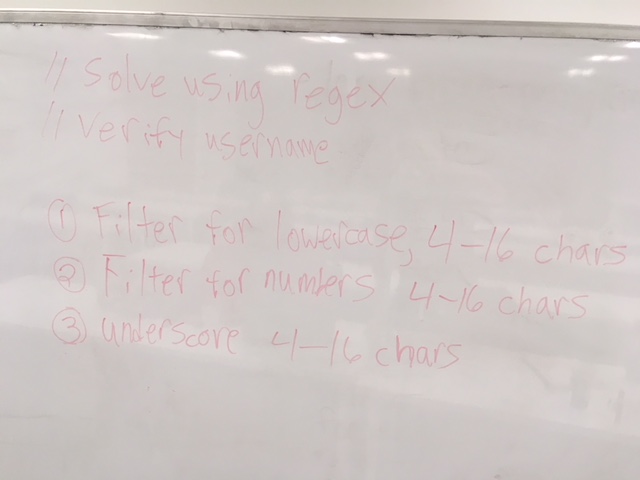 // Solve using regex
// Verify username
① Filter for lowercase, 4-16 chars
② Filter for numbers 4-16 chars
③ underscore 4-16 chars